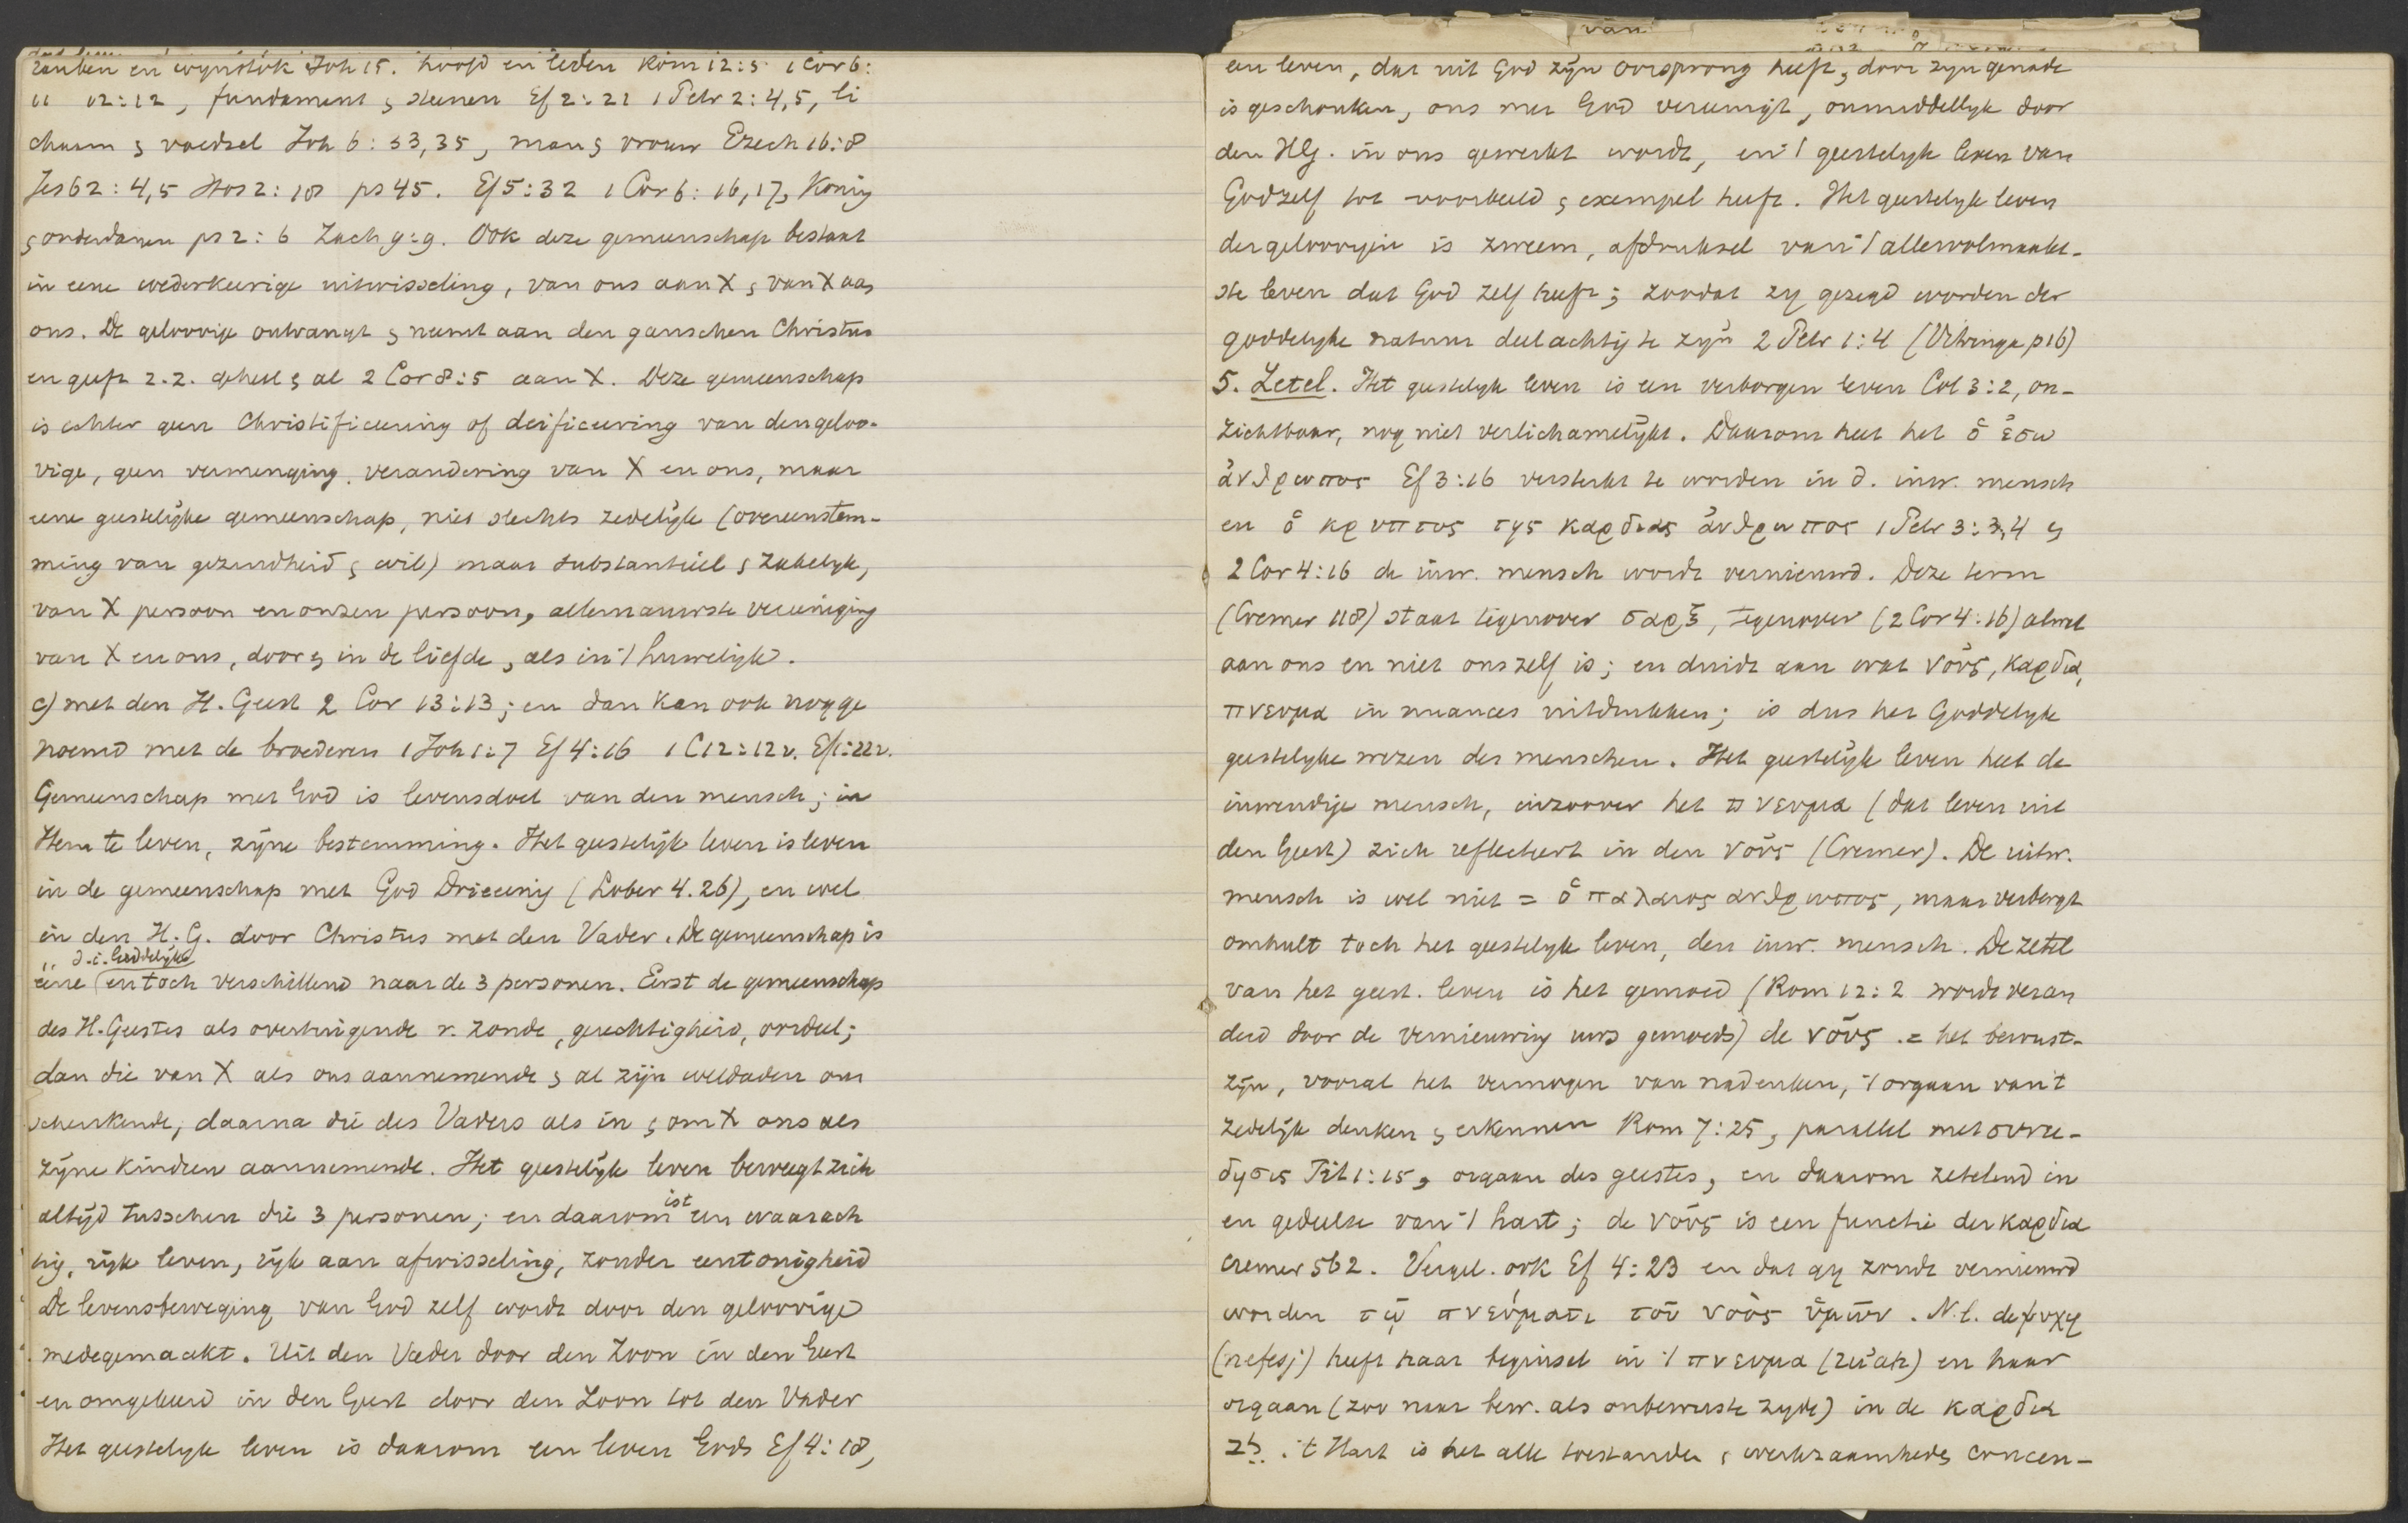 ranken en wynstok Joh 15. hoofd en leden Rom 12:5 1 Cor 6:
11 12:12, fundament & steenen Ef 2:21 1 Petr 2:4,5, li
chaam & voedsel Joh 6:33,35, man & vrouw Ezech 16:8
Jes 62:4,5 Hos 2:18 ps 45. Ef 5:32 1 Cor 6:16,17, Konig
& onderdanen ps 2:6 Zach 9:9. Ook deze gemeenschap bestaat
in eene wederkeerige uitwisseling, van ons aan X & van X aan
ons. De geloovige ontvangt & neemt aan den ganschen Christus
en geeft z.z. geheel & al 2 Cor 8:5 aan X. Deze gemeenschap
is echter geen Christificeering of deificeering van den geloo-
vige, geen vermenging, verandering van X en ons, maar
eene geestelijke gemeenschap, niet slechts zedelijk (overeenstem-
ming van gezindheid & wil) maar substantieel & zakelyk,
van X persoon en onzen persoon, allernauwste vereeniging
van X en ons, door & in de liefde, als in 't huwelijk.
c) met den H. Geest 2 Cor 13:13; en dan kan ook nog ge
noemd met de broederen 1 Joh 1:7 Ef 4:16 1 C 12:12v. Ef 1:22v.
Gemeenschap met God is levensdoel van den mensch; in
Hem te leven, zijne bestemming. Het geestelijk leven is leven
in de gemeenschap met God Drieeenig (Lober 4.26), en wel
in den H.G. door Christus met den Vader. De gemeenschap is
d.i. Goddelijke
eene (en toch verschillend naar de 3 personen. Eerst de gemeenschap
des H. Geestes als overtuigende v. zonde, gerechtigheid, oordeel;
dan die van X als ons aannemende & al zijn weldaden ons
schenkende, daarna die des Vaders als in & om X ons als
zijne kinderen aannemende. Het geestelijk leven beweegt zich
altijd tusschen die 3 personen; en daarom ist een waarach
tig, rijk leven, rijk aan afwisseling, zonder eentonigheid
De levensbeweging van God zelf wordt door den geloovige
medegemaakt. Uit den Vader door den Zoon in den Geest
en omgekeerd in den Geest door den Zoon tot den Vader
Het geestelyk leven is daarom een leven Gods Ef 4:18,
van
een leven, dat uit God zijn oorsprong heeft, door zijn genade
is geschonken, ons met God vereenigt, onmiddellyk door
den HG. in ons gewerkt wordt, en 't geestelyk leven van
Godzelf tot voorbeeld & exempel heeft. Het geestelyk leven
der geloovigen is zweem, afdruksel van 't allervolmaakt-
ste leven dat God zelf heeft; zoodat zy gezegd worden der
goddelyke natuur deelachtig te zijn 2 Petr 1:4 (Vitringa p 16)
5. Zetel. Het geestelyk leven is een verborgen leven Col 3:2, on-
zichtbaar, nog niet verlichamelijkt. Daarom heet het ὁ ἐσω
ἀνθρωπος Ef 3:16 versterkt te worden in d. inw. mensch
en ὁ κρυπτος της καρδιας ἀνθρωπος 1 Petr 3:3,4 &
2 Cor 4:16 de inw. mensch wordt vernieuwd. Deze term
(Cremer 118) staat tegenover σαρξ, tegenover (2 Cor 4:16) alwat
aan ons en niet ons zelf is; en duidt aan wat νους, καρδια,
πνευμα in nuances uitdrukken; is dus het Goddelyke
geestelyke wezen des menschen. Het geestelijk leven heet de
inwendige mensch, inzoover het πνευμα (dat leven uit
den Geest) zich reflecteert in den νους (Cremer). De uitw.
mensch is wel niet = ὁ παλαιος ανθρωπος, maar verbergt
omhult toch het geestelyk leven, den inw. mensch. De zetel
van het geest. leven is het gemoed (Rom 12:2 wordt veran
derd door de vernieuwing uws gemoeds) de νους .= het bewust-
zijn, vooral het vermogen van nadenken, 't orgaan van 't
zedelijk denken & erkennen Rom 7:25, parallel met συνει-
δησις Tit 1:15, orgaan des geestes, en daarom zetelend in
en gedeelte van 't hart; de νους is een functie der καρδια
Cremer 562. Vergel. ook Ef 4:23 en dat gy zoudt vernieuwd
worden τῳ πνεύματι τοῦ νοὸς ὑμῶν. N.l. de ψυχη
(nefesj) heeft haar beginsel in 't πνευμα (ruach) en haar
orgaan (zoo naar bew. als onbewuste zyde) in de καρδια
לב. 't Hart is het alle toestanden & werkzaamheden concen-